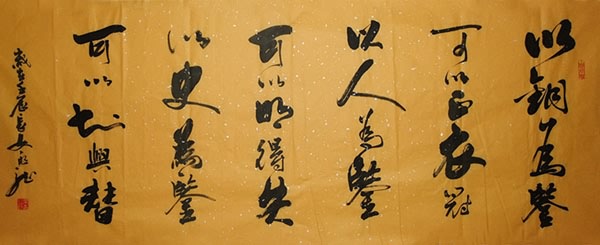 以銅為鑒
可以正衣冠
以人為鑒
可以明得失
以史為鑒
可以知興替
歲在壬辰